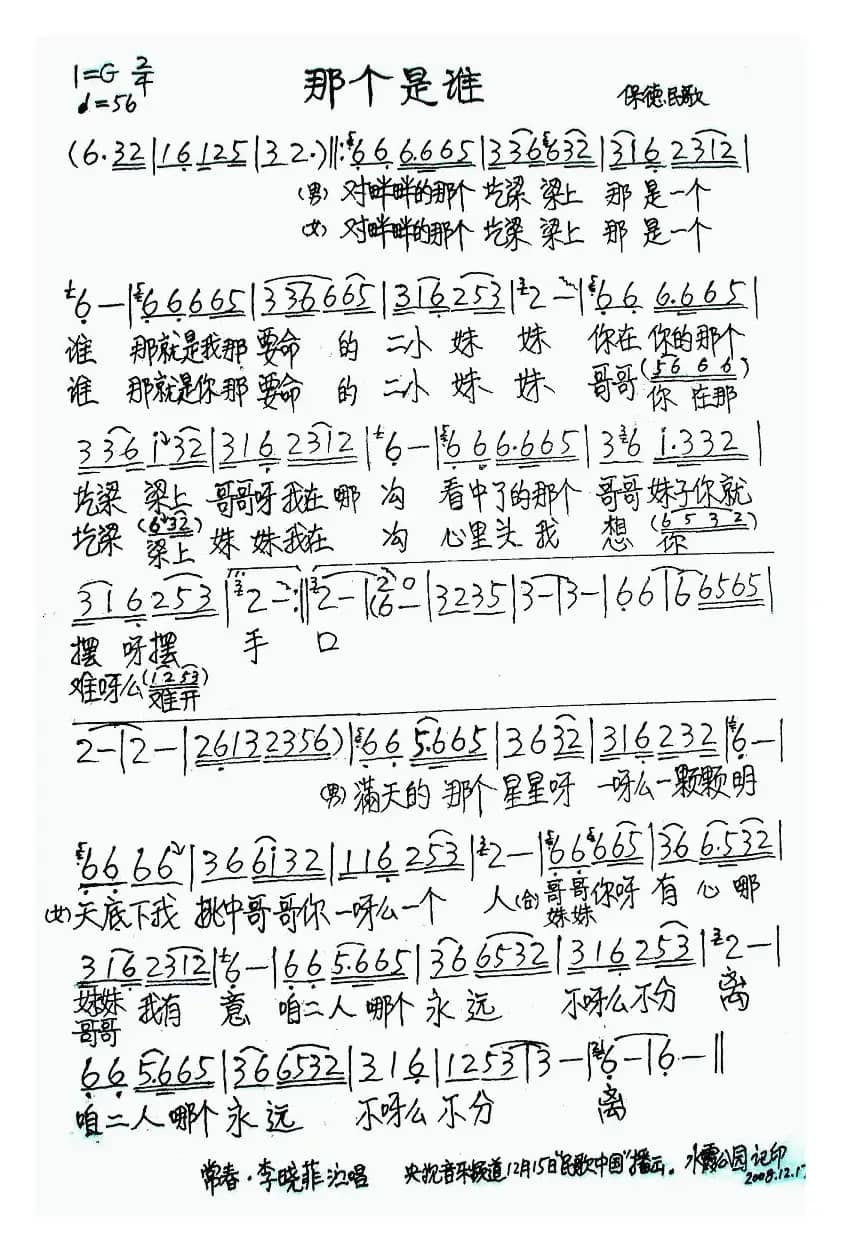 1=G 2/4
♩=56
那个是谁
保德民歌
(6·32|16125|32·)‖:66 6.665|336632|316 2312|
(男) 对畔畔的那个 圪梁 梁上 那 是一个
(女) 对畔畔的那个 圪梁 梁上 那 是一个
6—|66665|336665|316253|2—|66 6.665|
谁 那就是我那 要命 的 二小 妹 妹 你在 你的那个
谁 那就是你那 要命 的 二小 妹 妹 哥哥 (56 6 6)
你 在那
336 i32|316 2312|6—|66 6.665|36 i.332|
圪梁 梁上 哥哥呀我在 哪 沟 看中了的那个 哥哥妹子你就
圪梁 (6 32) 妹 妹我在 沟 心里头 我 想 (6 5 3 2)
梁上 你
316 253|2—:‖2—|(6—|3235|3—|3—|66|66565|
摆 呀摆 手 口
难呀么 (1253)
难开
2—|2—|26132356)|66 5.665|3632|316232|6—|
(男) 满天的 那个 星星呀 一呀么一颗颗明
66 66|366i32|116 253|2—|66665|36 6.532|
(女) 天底下我 挑中哥哥你 一呀么一个 人 (合) 哥哥你呀 有 心 哪
妹妹
316 2312|6—|66 5.665|366532|316 253|2—|
妹妹 我有 意 咱二人 哪个 永 远 不呀么不分 离
哥哥
66 5.665|366532|316|1253|3—|6—|6·—‖
咱二人 哪个 永 远 不呀么 不分 离
常春·李晓菲演唱 央视音乐频道12月15日"民歌中国"播出。 水霞公园记印
2008.12.17